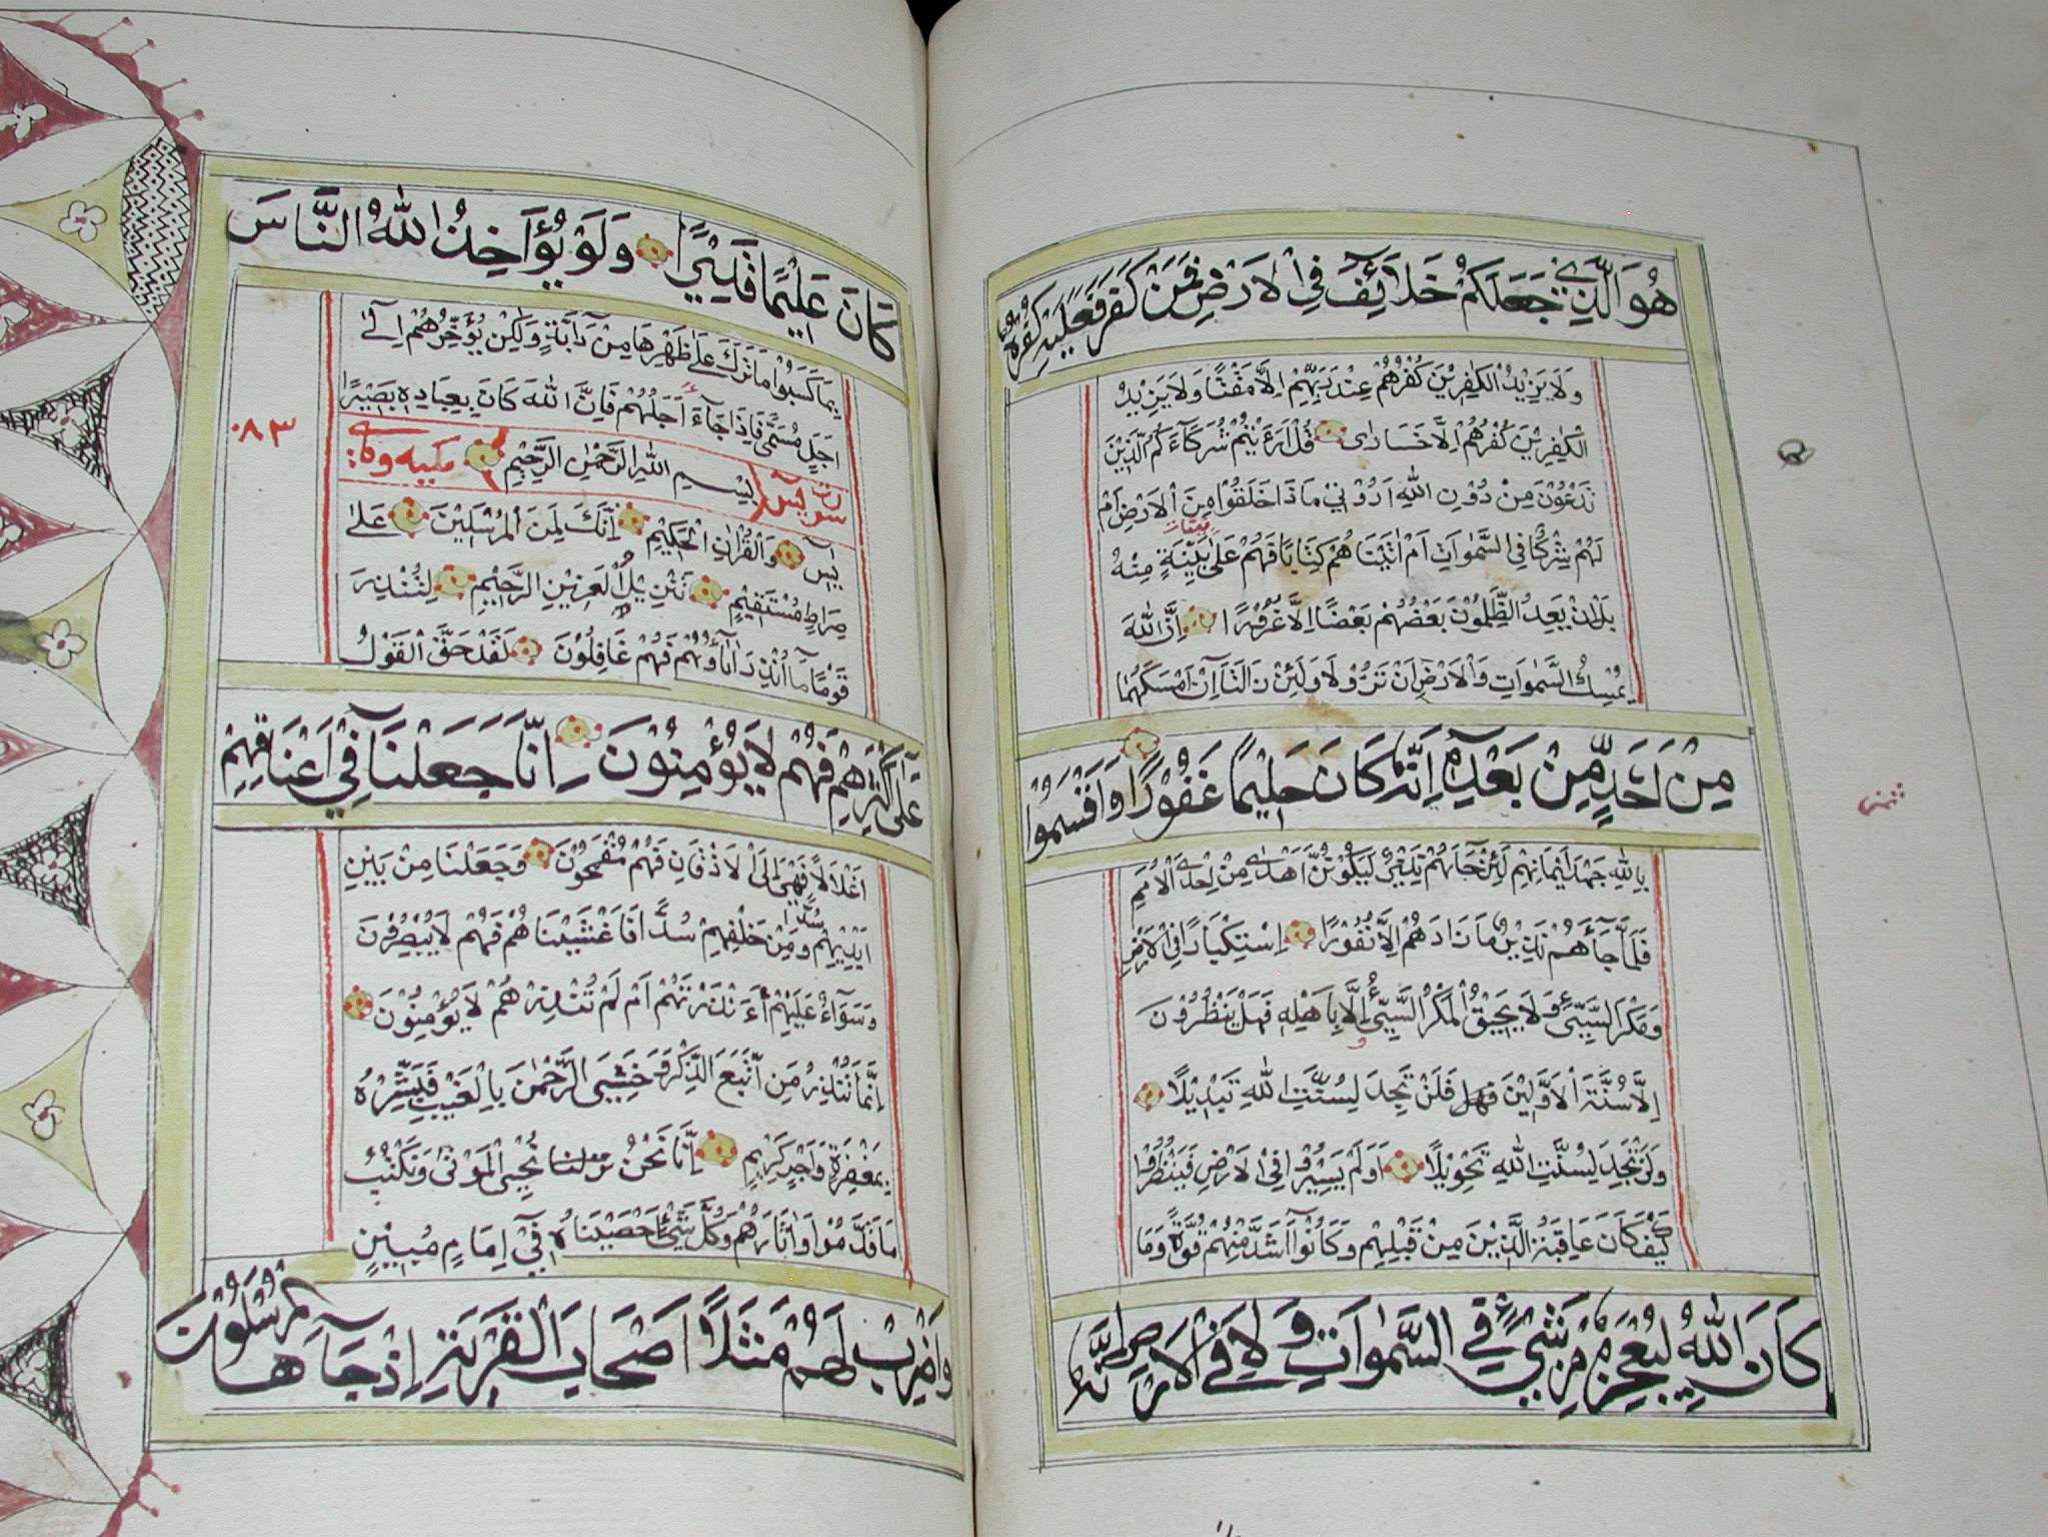 هُوَ الَّذِي جَعَلَكُمْ خَلَائِفَ فِي الْاَرْضِ فَمَنْ كَفَرَ فَعَلَيْهِ كُفْرُهُ
وَلَا يَزِيْدُ الْكَافِرِيْنَ كُفْرُهُمْ عِنْدَ رَبِّهِمْ اِلَّا مَقْتًا وَلَا يَزِيْدُ
الْكَافِرِيْنَ كُفْرُهُمْ اِلَّا خَسَارًا قُلْ اَرَءَيْتُمْ شُرَكَآءَكُمُ الَّذِيْنَ
تَدْعُوْنَ مِنْ دُوْنِ اللّٰهِ اَرُوْنِيْ مَاذَا خَلَقُوْا مِنَ الْاَرْضِ اَمْ
لَهُمْ شِرْكٌ فِي السَّمٰوَاتِ اَمْ اٰتَيْنَا هُمْ كِتَابًا فَهُمْ عَلٰى بَيِّنَةٍ مِنْهُ
بَلْ اِنْ يَعِدُ الظّٰلِمُوْنَ بَعْضُهُمْ بَعْضًا اِلَّا غُرُوْرًا اِنَّ اللّٰهَ
يُمْسِكُ السَّمٰوَاتِ وَالْاَرْضَ اَنْ تَزُوْلَا وَلَئِنْ زَالَتَآ اِنْ اَمْسَكَهُمَا
مِنْ اَحَدٍ مِّنْ بَعْدِهٖ اِنَّهُ كَانَ حَلِيْمًا غَفُوْرًا وَاَقْسَمُوْا
بِاللّٰهِ جَهْدَ اَيْمَانِهِمْ لَئِنْ جَآءَهُمْ نَذِيْرٌ لَيَكُوْنُنَّ اَهْدٰى مِنْ اِحْدَى الْاُمَمِ
فَلَمَّا جَآءَهُمْ نَذِيْرٌ مَا زَادَهُمْ اِلَّا نُفُوْرًا اِسْتِكْبَارًا فِي الْاَرْضِ
وَمَكْرَ السَّيِّئِ وَلَا يَحِيْقُ الْمَكْرُ السَّيِّئُ اِلَّا بِاَهْلِهٖ فَهَلْ يَنْظُرُوْنَ
اِلَّا سُنَّةَ الْاَوَّلِيْنَ فَلَنْ تَجِدَ لِسُنَّتِ اللّٰهِ تَبْدِيْلًا
وَلَنْ تَجِدَ لِسُنَّتِ اللّٰهِ تَحْوِيْلًا اَوَلَمْ يَسِيْرُوْا فِي الْاَرْضِ فَيَنْظُرُوْا
كَيْفَ كَانَ عَاقِبَةُ الَّذِيْنَ مِنْ قَبْلِهِمْ وَكَانُوْآ اَشَدَّ مِنْهُمْ قُوَّةً وَمَا
كَانَ اللّٰهُ لِيُعْجِزَهُ مِنْ شَيْءٍ فِي السَّمٰوَاتِ وَلَا فِي الْاَرْضِ اِنَّهُ
كَانَ عَلِيْمًا قَدِيْرًا وَلَوْ يُؤَاخِذُ اللّٰهُ النَّاسَ
بِمَا كَسَبُوْا مَا تَرَكَ عَلٰى ظَهْرِهَا مِنْ دَآبَّةٍ وَلٰكِنْ يُؤَخِّرُهُمْ اِلٰى
اَجَلٍ مُسَمًّى فَاِذَا جَآءَ اَجَلُهُمْ فَاِنَّ اللّٰهَ كَانَ بِعِبَادِهٖ بَصِيْرًا
سورة يس بِسْمِ اللّٰهِ الرَّحْمٰنِ الرَّحِيْمِ مكيه
٨٣
يٰسٓ وَالْقُرْاٰنِ الْحَكِيْمِ اِنَّكَ لَمِنَ الْمُرْسَلِيْنَ عَلٰى
صِرَاطٍ مُسْتَقِيْمٍ تَنْزِيْلَ الْعَزِيْزِ الرَّحِيْمِ لِتُنْذِرَ
قَوْمًا مَا اُنْذِرَ اٰبَآؤُهُمْ فَهُمْ غَافِلُوْنَ لَقَدْ حَقَّ الْقَوْلُ
عَلٰى اَكْثَرِهِمْ فَهُمْ لَا يُؤْمِنُوْنَ اِنَّا جَعَلْنَا فِيْ اَعْنَاقِهِمْ
اَغْلَالًا فَهِيَ اِلَى الْاَذْقَانِ فَهُمْ مُقْمَحُوْنَ وَجَعَلْنَا مِنْ بَيْنِ
اَيْدِيْهِمْ سَدًّا وَمِنْ خَلْفِهِمْ سَدًّا فَاَغْشَيْنَاهُمْ فَهُمْ لَا يُبْصِرُوْنَ
وَسَوَآءٌ عَلَيْهِمْ ءَاَنْذَرْتَهُمْ اَمْ لَمْ تُنْذِرْهُمْ لَا يُؤْمِنُوْنَ
اِنَّمَا تُنْذِرُ مَنِ اتَّبَعَ الذِّكْرَ وَخَشِيَ الرَّحْمٰنَ بِالْغَيْبِ فَبَشِّرْهُ
بِمَغْفِرَةٍ وَاَجْرٍ كَرِيْمٍ اِنَّا نَحْنُ نُحْيِي الْمَوْتٰى وَنَكْتُبُ
مَا قَدَّمُوْا وَاٰثَارَهُمْ وَكُلَّ شَيْءٍ اَحْصَيْنَاهُ فِيْ اِمَامٍ مُبِيْنٍ
وَاضْرِبْ لَهُمْ مَثَلًا اَصْحَابَ الْقَرْيَةِ اِذْ جَآءَهَا الْمُرْسَلُوْنَ